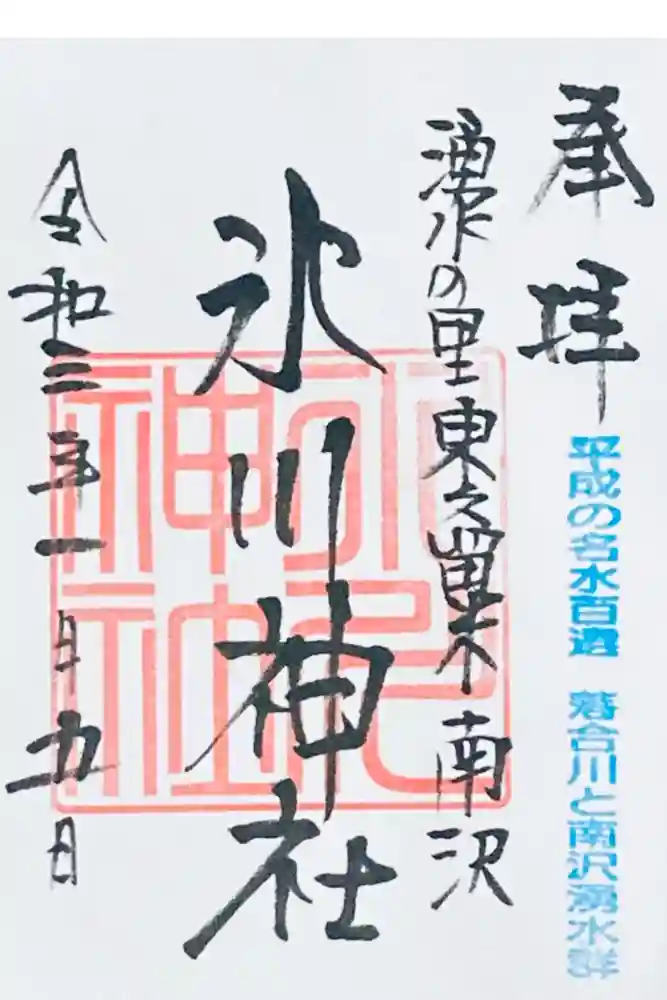 奉拝
平成の名水百選 落合川と南沢湧水群
湧水の里東久留米南沢
氷川神社
令和三年一月九日